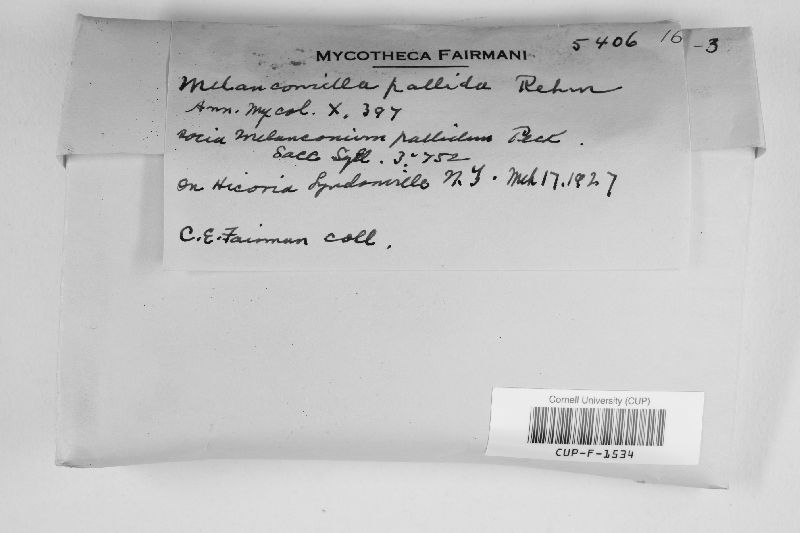 5406 16-3
MYCOTHECA FAIRMANI
Melanconiella pallida Rehm
Ann. Mycol. X, 397
socia Melanconium pallidum Peck.
Sacc Syll. 3:752
On Hicoria Lyndonville N.Y. Mch 17.1927
C.E. Fairman coll.
Cornell University (CUP)
CUP-F-1534